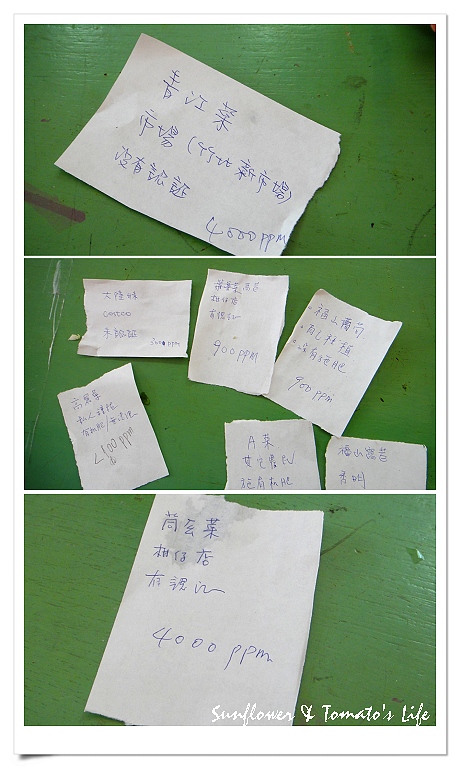 青江菜
市場(竹北新市場)
沒有認証
4000ppm
大陸妹
costco
未認証
3000ppm
柑仔店
有認証
900ppm
福山萵苣
有机種植
沒有施肥
900ppm
高麗菜
私人種植
<100ppm
A菜
施有机肥
福山萵苣
茼蒿菜
柑仔店
有認証
4000ppm
Sunflower & Tomato's Life